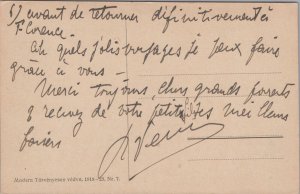 17 avant de retourner définitivement à
Florence.
Ah quels jolis voyages je peux faire
grâce à vous —
Merci toujours, chers grands parents
& recevez de votre petite les meilleurs
baisers
Modern Törvényesen védve. 1918-
Nr. 7.